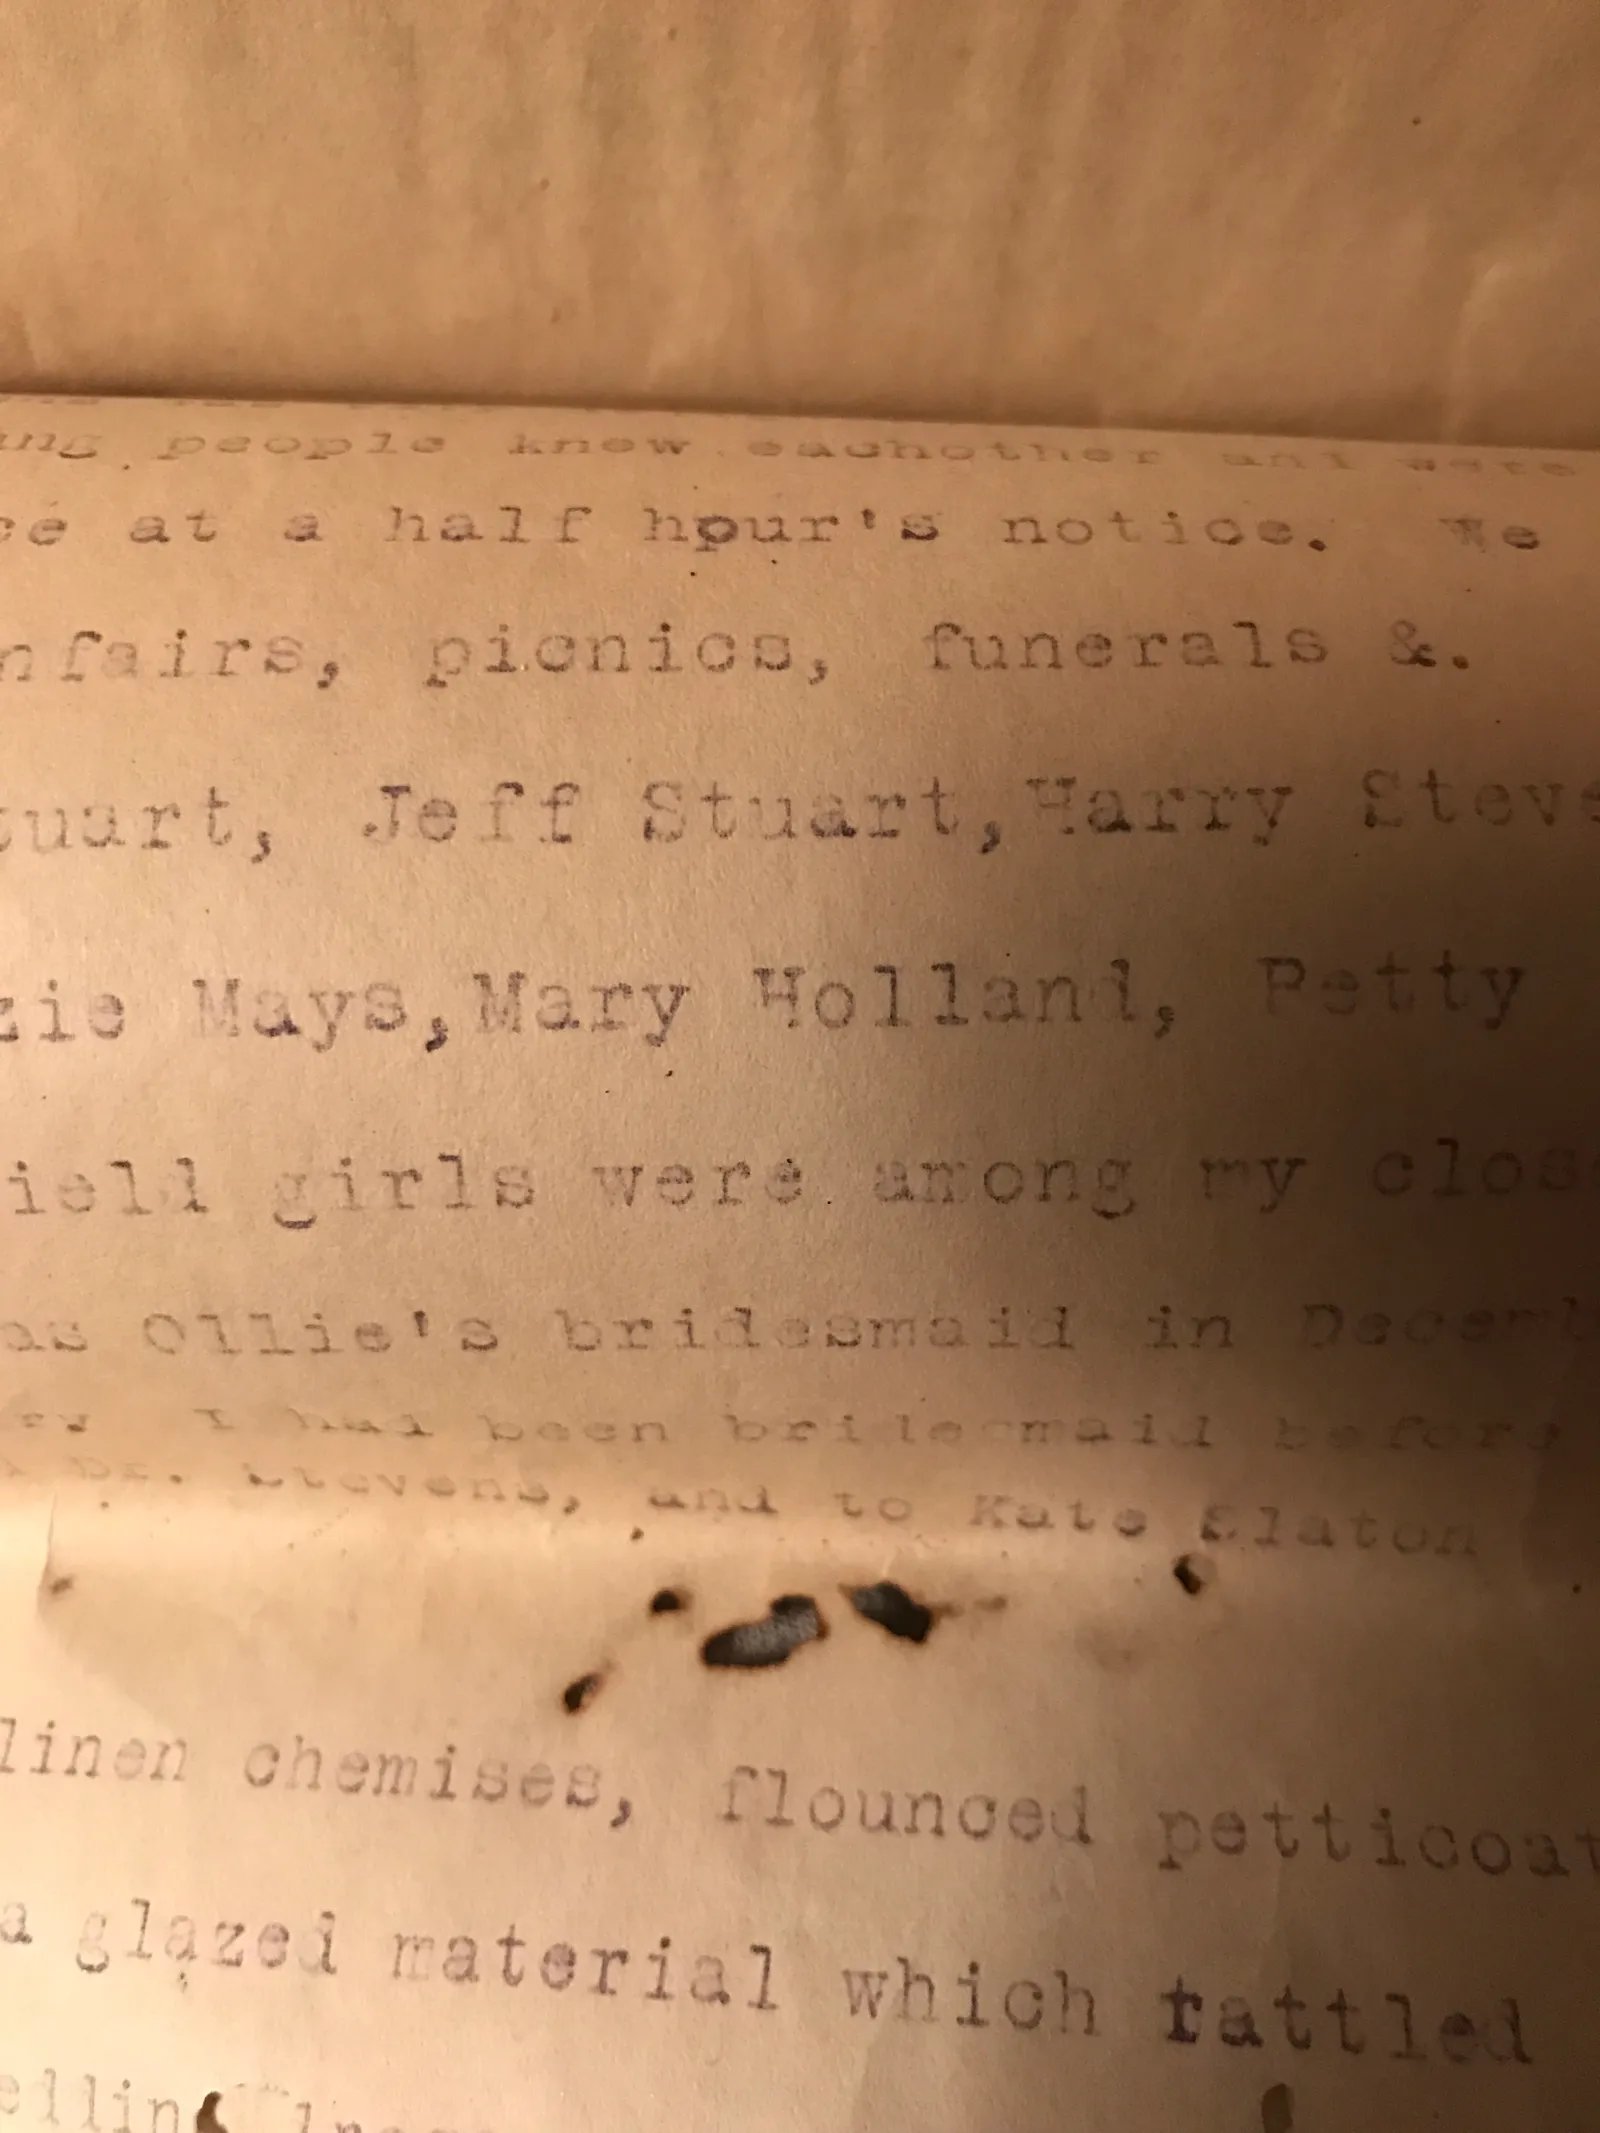 ing people knew eachother and were
ce at a half hour's notice. We
nfairs, picnics, funerals &.
tuart, Jeff Stuart,Harry Steve
zie Mays,Mary Holland, Petty
ield girls were among my clos
as Ollie's bridesmaid in Decemb
ry I had been bridesmaid before
Dr. Stevens, and to Kate Slaton
linen chemises, flounced petticoat
a glazed material which rattled
elling